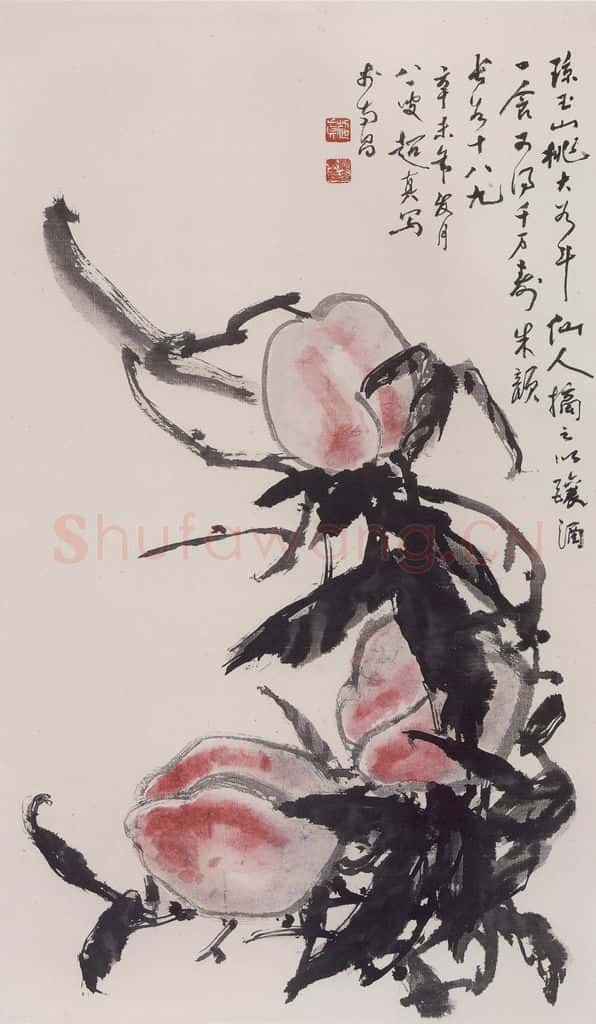 琼玉山桃大如斗仙人摘之以釀酒
一食可得千万寿朱颜
长如十八九
辛未年月
八叟超真写
於南昌
Shufawang.CN